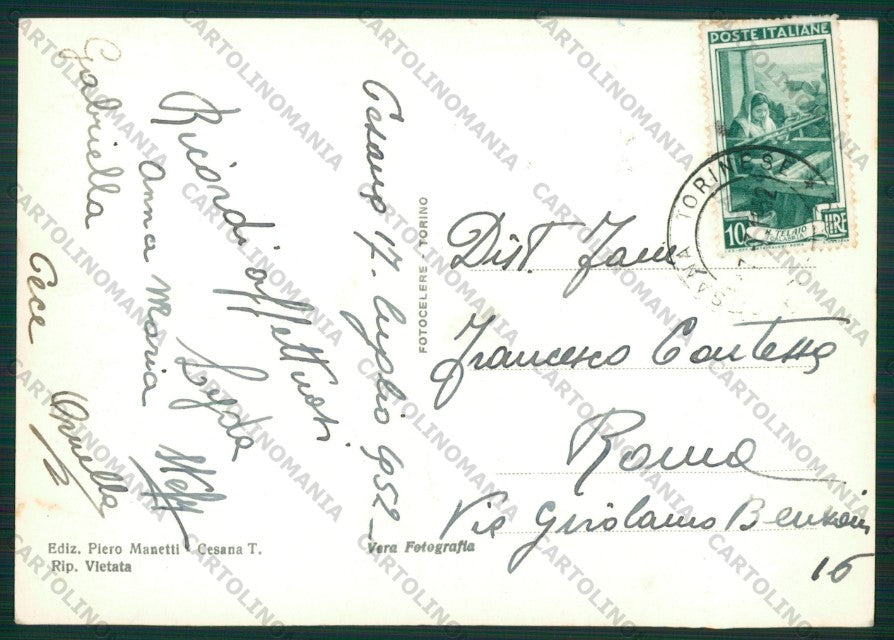 Cesana 17. luglio 952
Ricordi affettuosi
Anna Maria
Gabriella
Cece
Ornella
Dist. Fam
Francesco Contessa
Roma
Via Girolamo Benzoni
16
POSTE ITALIANE
10 LIRE
IL TELAIO
CALABRIA
TORINESE
FOTOCELERE - TORINO
Ediz. Piero Manetti - Cesana T.
Rip. Vietata
Vera Fotografia
CARTOLINOMANIA